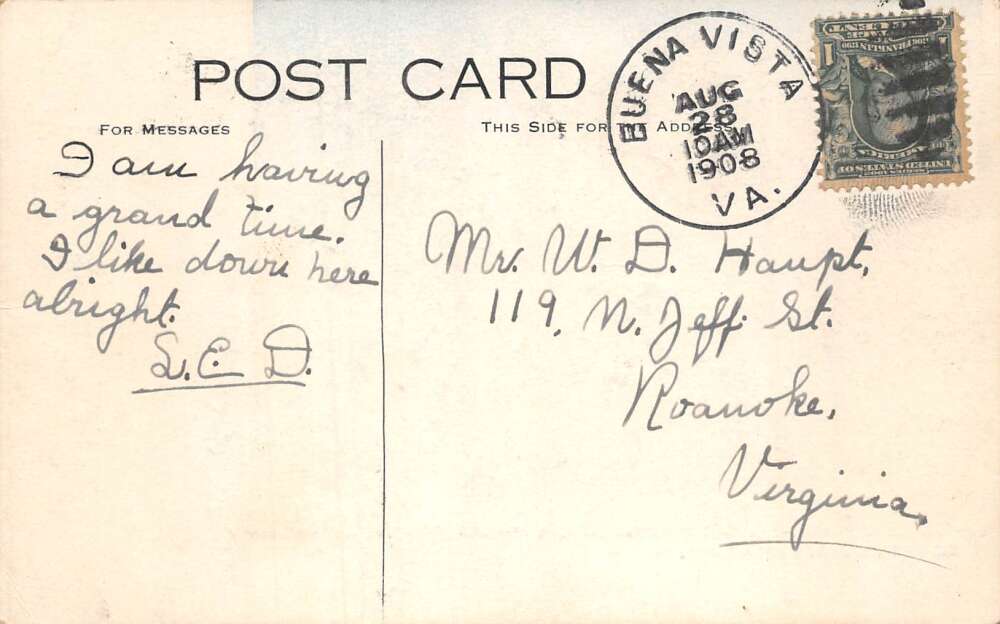 POST CARD
FOR MESSAGES
THIS SIDE FOR THE ADDRESS
BUENA VISTA
AUG
28
10AM
1908
VA.
I am having
a grand time.
I like down here
alright.
L.E.D.
Mr. W. D. Haupt,
119, N. Jeff. St.
Roanoke,
Virginia.